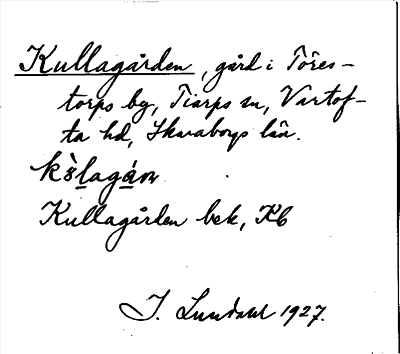 Kullagården, gård i Tôres-
torps by, Tiarps sn, Vartof-
ta hd, Skaraborgs län.
Kullagården bek, Kb
J. Lundahl 1927.